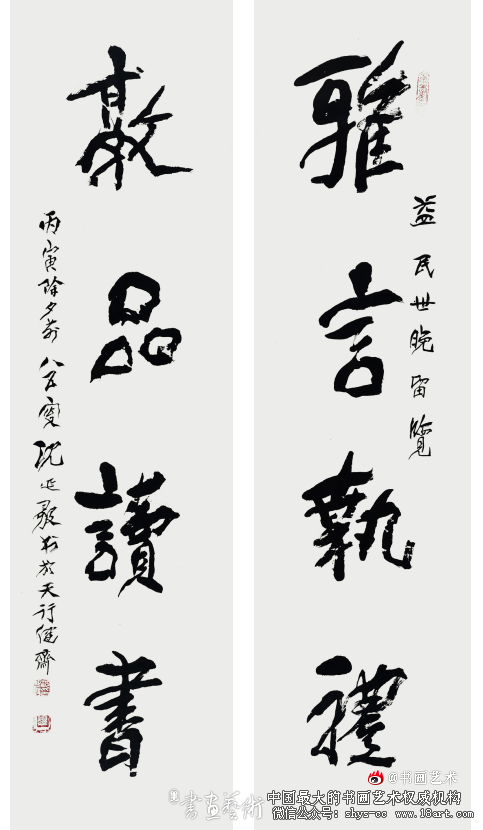 益民世晚留覽
雅言執禮
敦品讀書
丙寅除夕前 八五叟 沈延毅 於天行健齋
@书画艺术
書畫藝術
中国最大的书画艺术权威机构
微信公众号: shys-cc www.18art.com